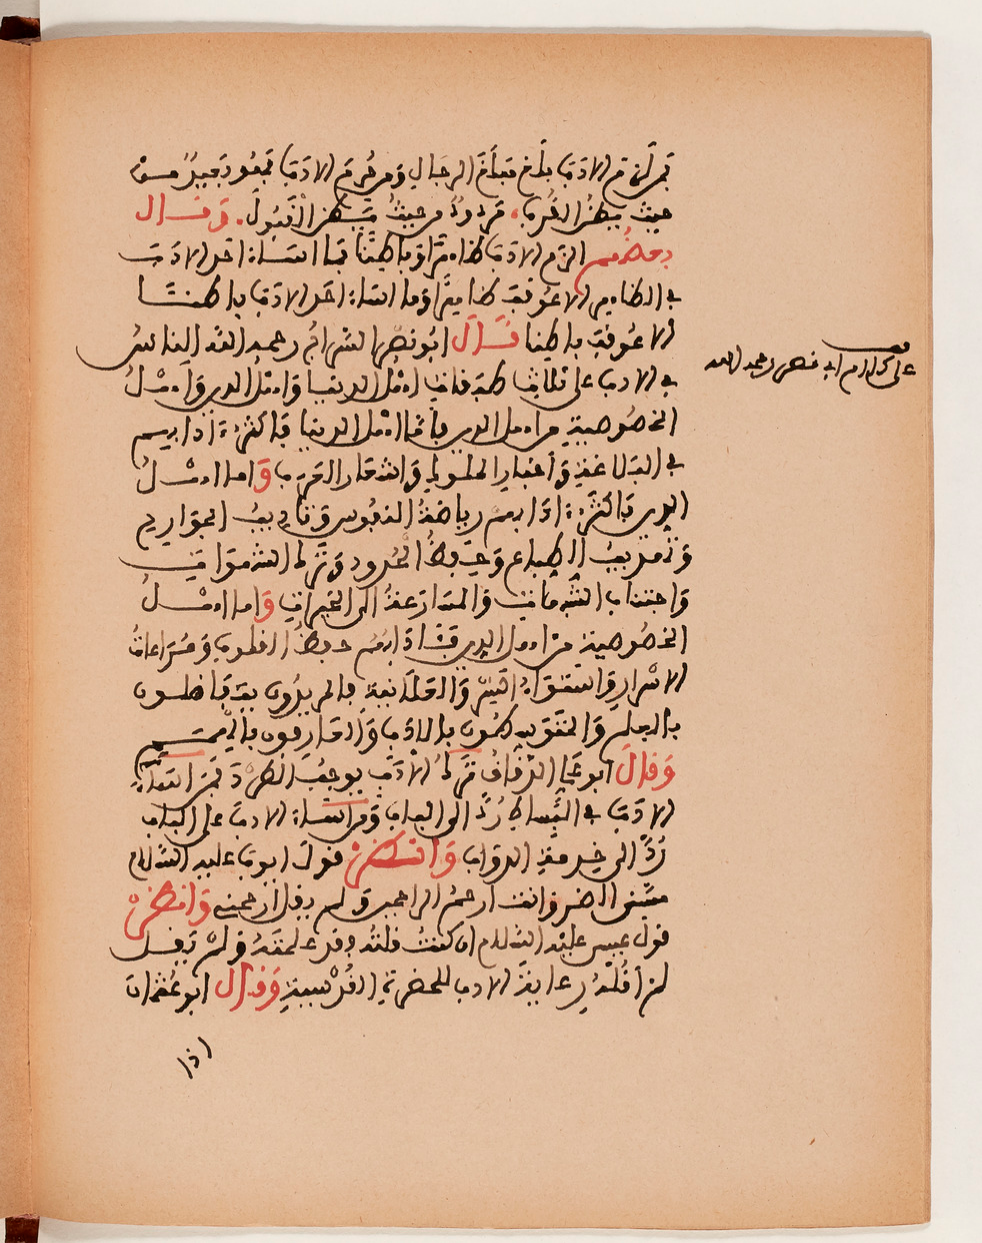 فمن لزم الأدب بلغ مبلغ الرجال ومن حرم الأدب فهو بعيد من
حيث يظن القرب، مردود من حيث يظن القبول. وقال
بعضهم الزم الأدب ظاهرا وباطنا فما أساء أحد الأدب
في الظاهر إلا عوقب ظاهرا وما أساء أحد الأدب باطنا
إلا عوقب باطنا قال أبو نصر السراج رحمه الله الناس
في الأدب على ثلاث طبقات أهل الدنيا وأهل الدين وأهل
الخصوصية من أهل الدين فأما أهل الدنيا فأكثر آدابهم
في البلاغة وأخبار الملوك وأشعار العرب وأما أهل
الدين فأكثر آدابهم رياضة النفوس وتأديب الجوارح
وتهذيب الطباع وحفظ الحدود وترك الشهوات
واجتناب الشبهات والمسارعة إلى الخيرات وأما أهل
الخصوصية من أهل الدين فآدابهم حفظ القلوب ومراعات
الأسرار واستواء السر والعلانية فالمريدون يتفاضلون
بالعلم والمتوسطون بالأدب والعارفون بالهمم
وقال أبو علي الدقاق ترك الأدب يوجب الطرد فمن أساء
الأدب في البساط رد إلى الباب ومن أساء الأدب على الباب
رد إلى خدمة الدواب وانظر قول أيوب عليه السلام
مسني الضر وأنت أرحم الراحمين ولم يقل ارحمني وانظر
قول عيسى عليه السلام إن كنت قلته فقد علمته ولم يقل
لم أقله رعاية الأدب للحضرة القدسية وقال أبو عثمان
إذا
على كلام أبي نصر رحمه الله